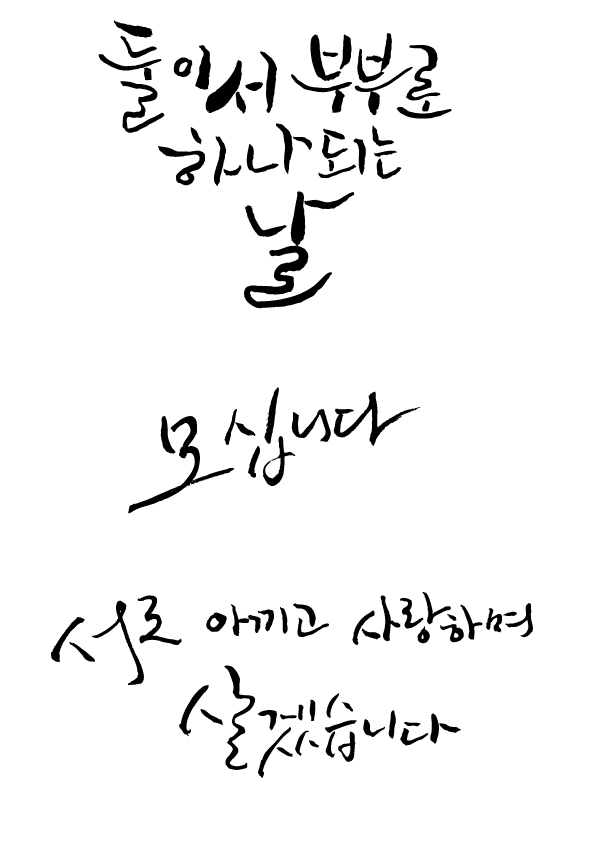 둘이서 부부로
하나 되는
날
모십니다
서로 아끼고 사랑하며
살겠습니다